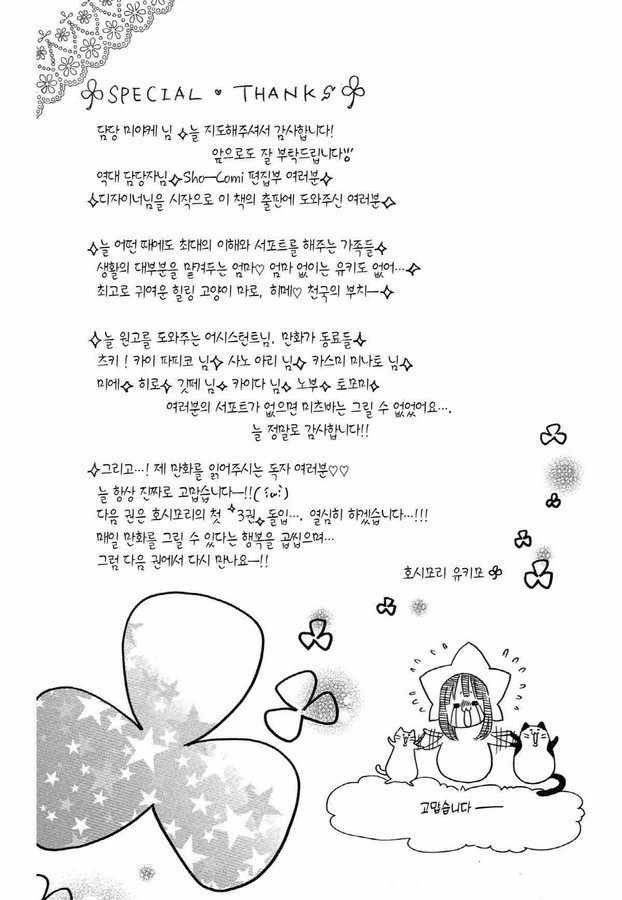 SPECIAL ♥ THANKS
담당 미야케 님 ✧늘 지도해주셔서 감사합니다!
앞으로도 잘 부탁드립니다
역대 담당자님✧Sho-Comi 편집부 여러분✧
✧디자이너님을 시작으로 이 책의 출판에 도와주신 여러분✧
✧늘 어떤 때에도 최대의 이해와 서포트를 해주는 가족들✧
생활의 대부분을 맡겨두는 엄마♡ 엄마 없이는 유키도 없어…✧
최고로 귀여운 힐링 고양이 마로, 히메♡ 천국의 부치—✧
✧늘 원고를 도와주는 어시스턴트님, 만화가 동료들✧
츠키! 카이 파피코 님✧ 사노 아리 님✧ 카스미 미나토 님✧
미에✧ 히로✧ 깃페 님✧ 카이다 님✧ 노부✧ 토모미✧
여러분의 서포트가 없으면 미츠바는 그릴 수 없었어요….
늘 정말로 감사합니다!!
✧그리고…! 제 만화를 읽어주시는 독자 여러분♡♡
늘 항상 진짜로 고맙습니다—!!(;ω;)
다음 권은 호시모리의 첫 ✧3권✧ 돌입…. 열심히 하겠습니다…!!!
매일 만화를 그릴 수 있다는 행복을 곱씹으며…
그럼 다음 권에서 다시 만나요—!!
호시모리 유키모
고맙습니다——